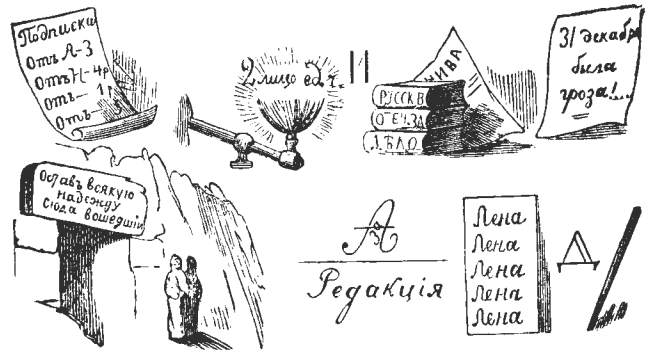 Подписка
Отъ А-З
Отъ Н-4р
Отъ— 1р
Отъ—
2 лицо ед. ч.
"
НИВА
РУССК В
ОТЕЧ. ЗА
ДѢЛО
31 декабря
была
гроза!...
Оставь всякую
надежду
сюда вошедшій
А
З
Редакція
Лена
Лена
Лена
Лена
Лена
Д